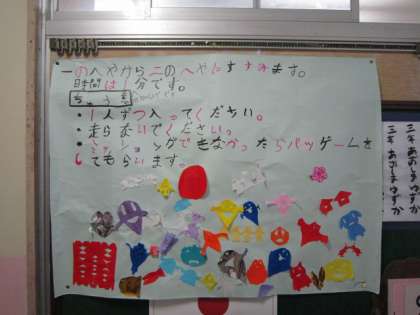 一のへやから二のへやにすすみます。
時間は1分です。
ちゅう意
・1人ずつ入ってください。
・走らないでください。
・ミッションができなかったらバツゲームを
してもらいます。